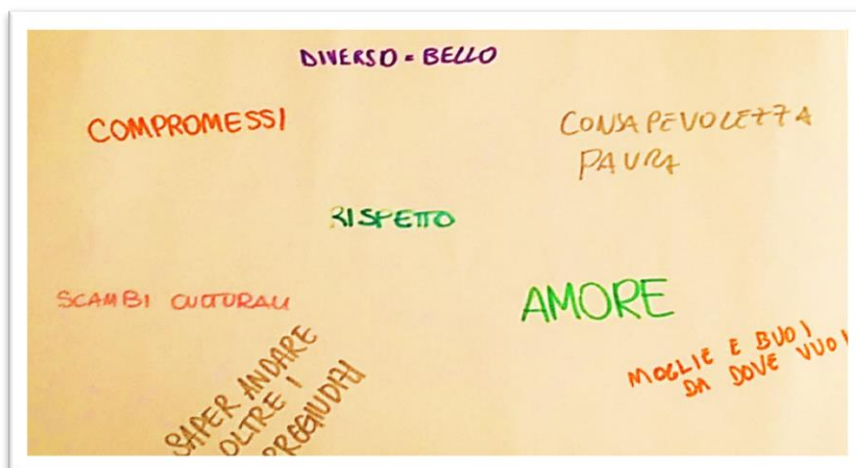 DIVERSO = BELLO
COMPROMESSI
CONSAPEVOLEZZA
PAURA
RISPETTO
SCAMBI CULTURALI
AMORE
SAPER ANDARE
OLTRE I
PREGIUDIZI
MOGLIE E BUOI
DA DOVE VUOI